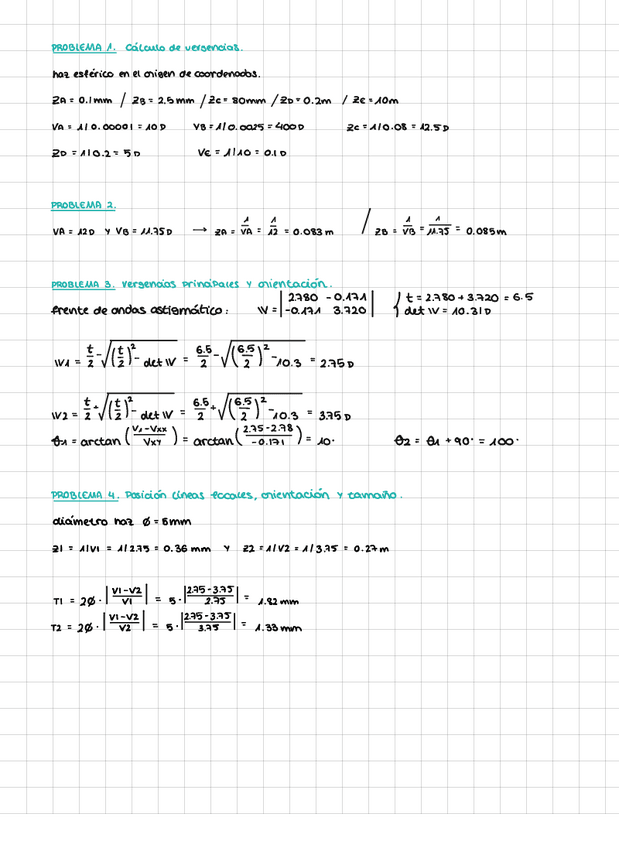 PROBLEMA 1. Cálculo de vergencias.
haz esférico en el origen de coordenadas.
ZA = 0.1mm / ZB = 2.5mm / ZC = 80mm / ZD = 0.2m / ZE = 10m
VA = 1/0.00001 = 10D VB = 1/0.0025 = 400D ZC = 1/0.08 = 12.5D
ZD = 1/0.2 = 5D VE = 1/10 = 0.1D
PROBLEMA 2.
VA = 12D y VB = 11.75D → ZA = 1/VA = 1/12 = 0.083m / ZB = 1/VB = 1/11.75 = 0.085m
PROBLEMA 3. Vergencias principales y orientación.
frente de ondas astigmático: W = | 2.780 -0.171 | { t = 2.780 + 3.720 = 6.5
| -0.171 3.720 | det W = 10.31D
W1 = t/2 - √((t/2)² - det W) = 6.5/2 - √((6.5/2)² - 10.3) = 2.75D
W2 = t/2 + √((t/2)² - det W) = 6.5/2 + √((6.5/2)² - 10.3) = 3.75D
θ1 = arctan (V1 - Vxx / Vxy) = arctan (2.75 - 2.78 / -0.171) = 10° θ2 = θ1 + 90° = 100°
PROBLEMA 4. Posición líneas focales, orientación y tamaño.
diámetro haz Ø = 5mm
Z1 = 1/V1 = 1/2.75 = 0.36 mm y Z2 = 1/V2 = 1/3.75 = 0.27m
T1 = 2Ø · |V1-V2 / V1| = 5 · |2.75-3.75 / 2.75| = 1.82 mm
T2 = 2Ø · |V1-V2 / V2| = 5 · |2.75-3.75 / 3.75| = 1.33 mm